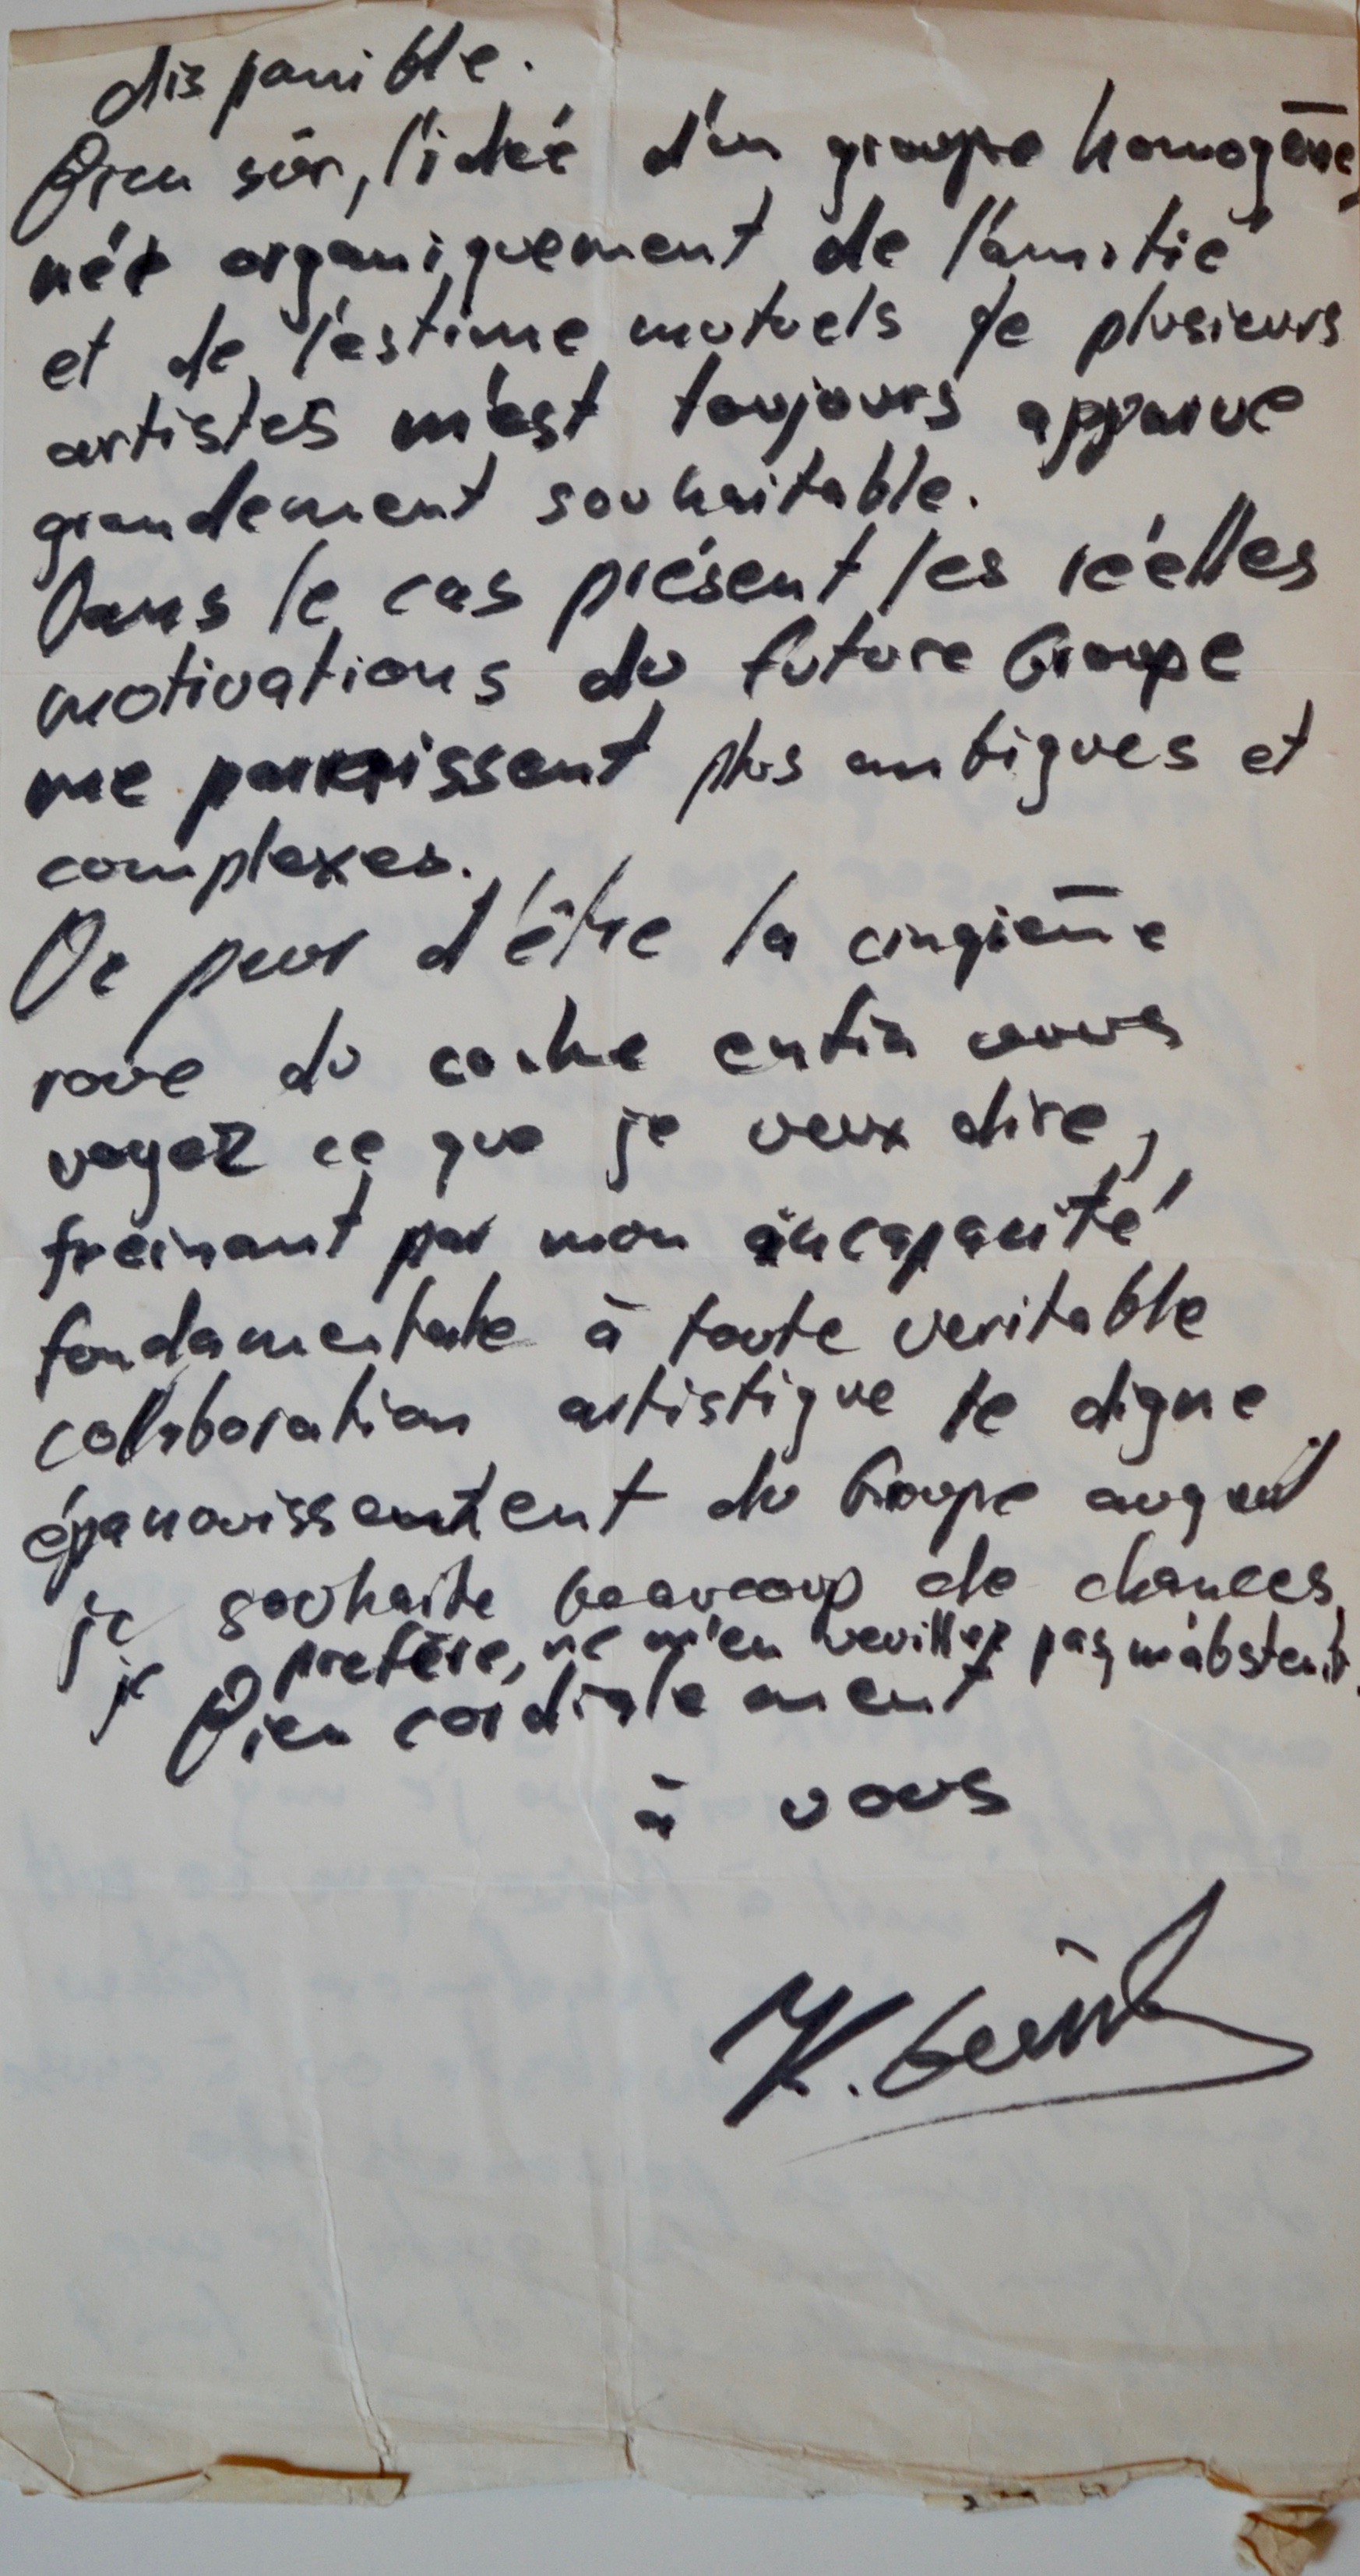 disponible.
Bien sûr, l'idée d'un groupe homogène,
née organiquement de l'amitié
et de l'estime mutuels de plusieurs
artistes m'est toujours apparue
grandement souhaitable.
Dans le cas présent les réelles
motivations du future Groupe
me paraissent plus ambigues et
complexes.
De peur d'être la cinqième
roue du coche enfin vous
voyez ce que je veux dire,
freinant par mon incapacité
fondamentale à toute veritable
collaboration artistique le digne
épanouissement du Groupe auquel
je souhaite beaucoup de chances,
je prefère, ne m'en veuillez pas, m'abstenir.
Bien cordialement
à vous